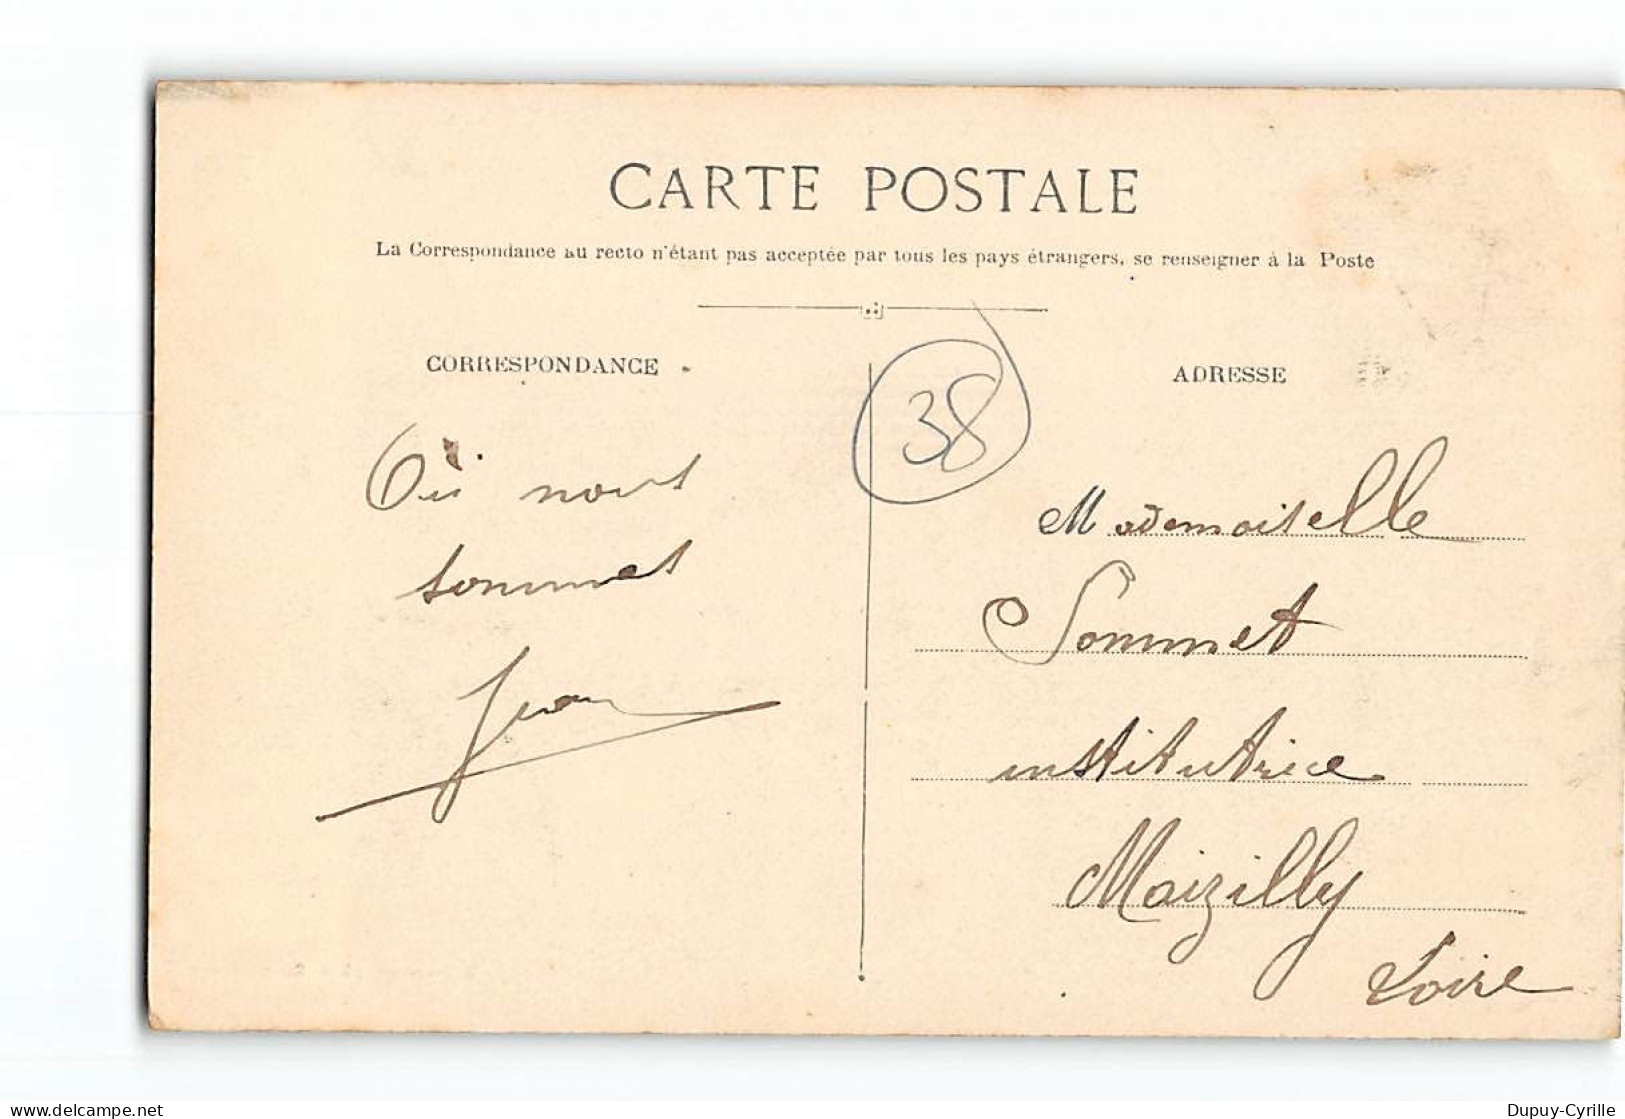 CARTE POSTALE
La Correspondance au recto n'étant pas acceptée par tous les pays étrangers, se renseigner à la Poste
CORRESPONDANCE
ADRESSE
38
Où nous
sommes
Jean
Mademoiselle
Sommet
institutrice
Maizilly
Loire
Dupuy-Cyrille